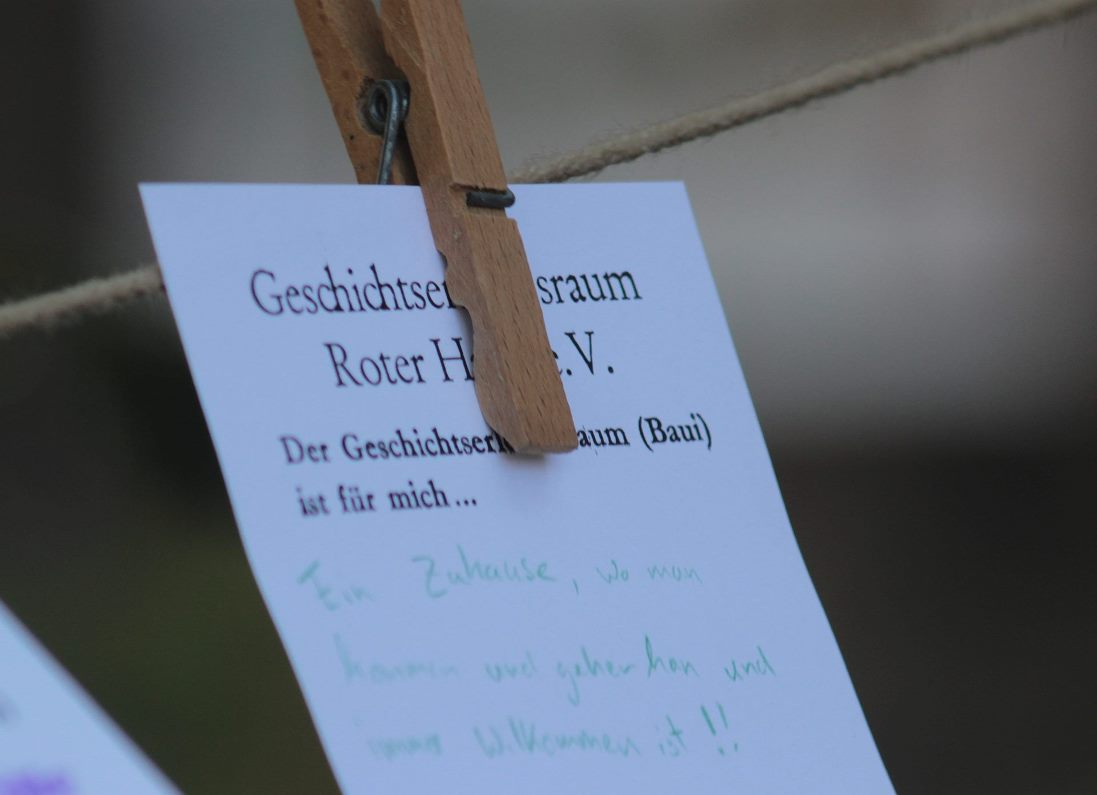 Geschichtser sraum
Roter H e.V.
Der Geschichtserl aum (Baui)
ist für mich...
Ein Zuhause, wo man
kommen und gehen kan und
immer Willkommen ist !!